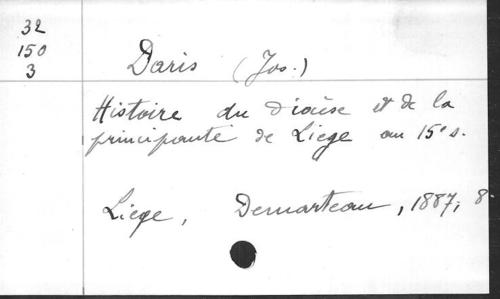 32
150
3
Daris (Jos.)
Histoire du Diocèse et de la
principauté de Liege au 15e s.
Liege, Demarteau, 1887, 8